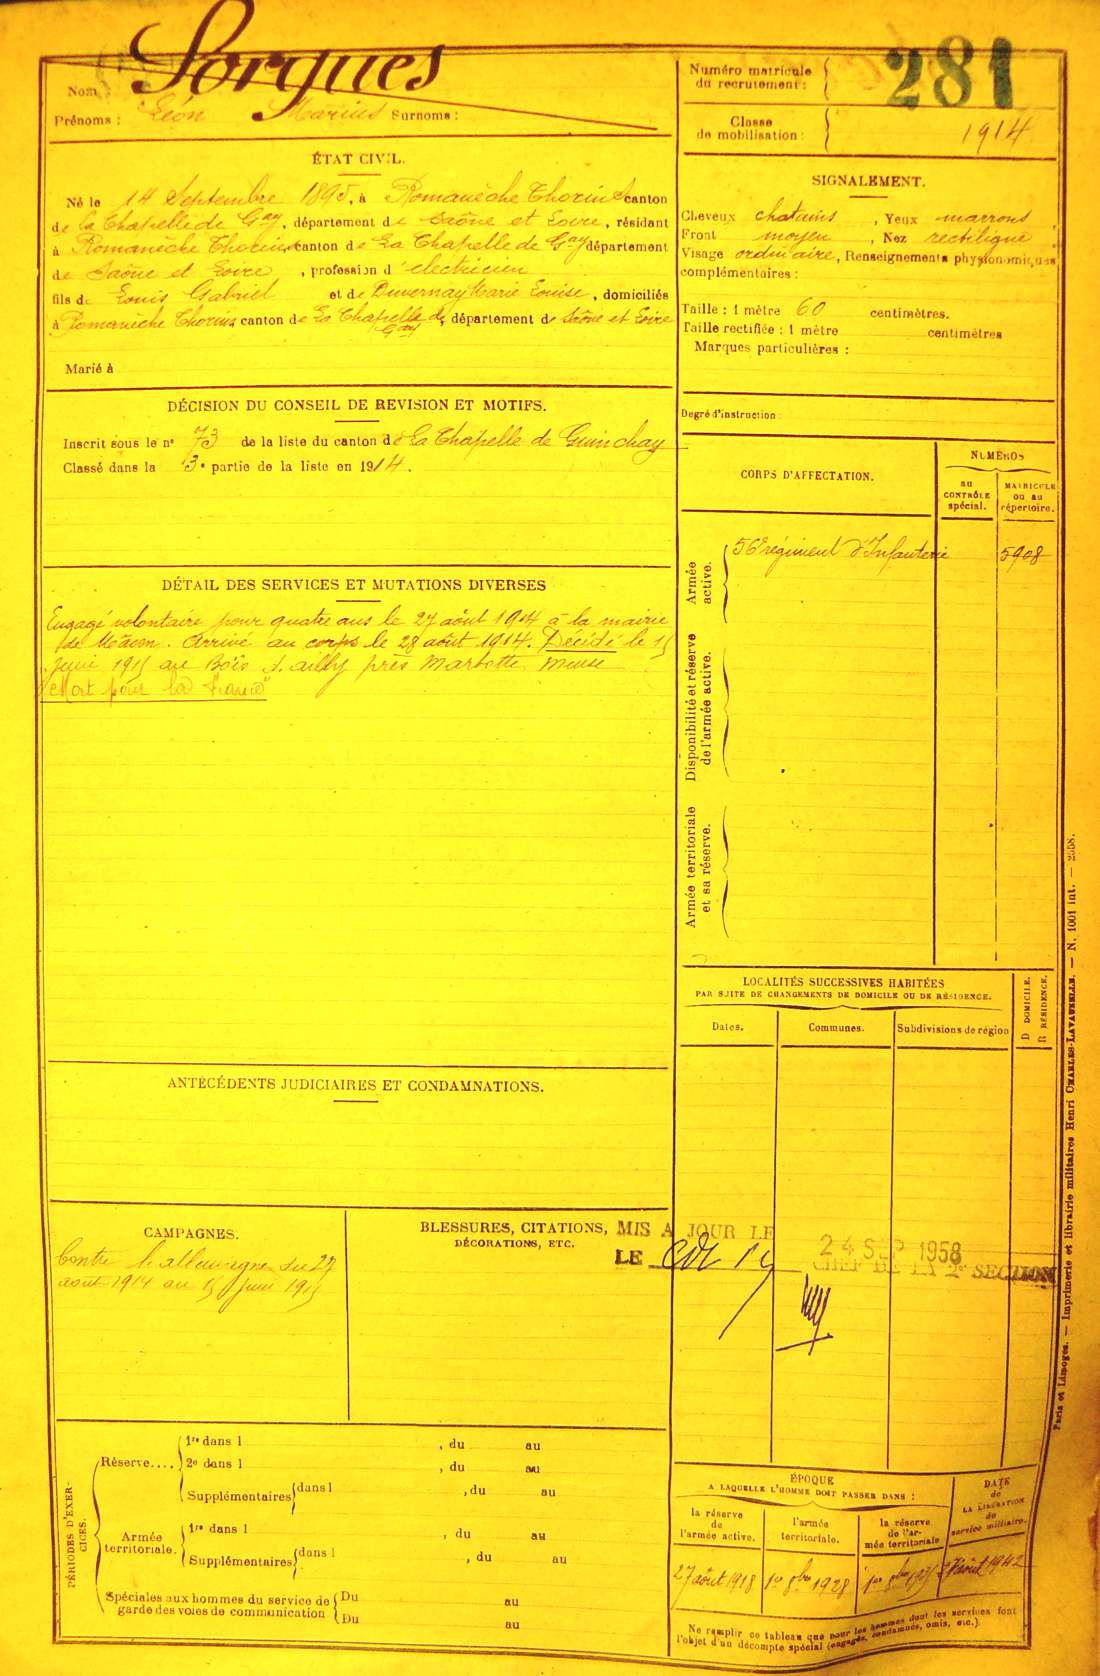 Sorgues
Nom
Prénoms : Léon Marius Surnoms :
Numéro matricule
du recrutement :
281
Classe
de mobilisation :
1914
ÉTAT CIVIL.
Né le 14 Septembre 1895, à Romanèche Thorins canton
de la Chapelle de Gay, département de Saône et Loire, résidant
à Romanèche Thorins canton de La Chapelle de Gay département
de Saône et Loire, profession d'électricien
fils de Louis Gabriel et de Duvernay Marie Louise, domiciliés
à Romanèche Thorins canton de La Chapelle de Gay, département de Saône et Loire
Marié à
SIGNALEMENT.
Cheveux chatains, Yeux marrons
Front moyen, Nez rectiligne
Visage ordinaire, Renseignements physionomiques
complémentaires :
Taille : 1 mètre 60 centimètres.
Taille rectifiée : 1 mètre centimètres
Marques particulières :
Degré d'instruction :
DÉCISION DU CONSEIL DE REVISION ET MOTIFS.
Inscrit sous le n° 73 de la liste du canton de La Chapelle de Guinchay
Classé dans la 3e partie de la liste en 1914.
CORPS D'AFFECTATION.
NUMÉROS
au
CONTRÔLE
spécial.
MATRICULE
ou au
répertoire.
Armée
active.
56e régiment d'Infanterie 5908
Disponibilité et réserve
de l'armée active.
Armée territoriale
et sa réserve.
DÉTAIL DES SERVICES ET MUTATIONS DIVERSES
Engagé volontaire pour quatre ans le 27 août 1914 à la mairie
de Mâcon. Arrivé au corps le 28 août 1914. Décédé le 15
juin 1915 au Bois d'ailly près Marbotte Meuse
"Mort pour la France"
LOCALITÉS SUCCESSIVES HABITÉES
PAR SUITE DE CHANGEMENTS DE DOMICILE OU DE RÉSIDENCE.
Dates.
Communes.
Subdivisions de région
D DOMICILE.
R RÉSIDENCE.
ANTÉCÉDENTS JUDICIAIRES ET CONDAMNATIONS.
CAMPAGNES.
Contre l'allemagne du 27
août 1914 au 15 juin 1915
BLESSURES, CITATIONS,
DÉCORATIONS, ETC.
MIS A JOUR LE
24 SEP 1958
LE
CHEF DE LA 2e SECTION
PÉRIODES D'EXER-
CICES.
Réserve....
1re dans l , du au
2e dans l , du au
Supplémentaires dans l , du au
Armée
territoriale.
1re dans l , du au
Supplémentaires dans l , du au
Spéciales aux hommes du service de
garde des voies de communication
Du au
Du au
ÉPOQUE
A LAQUELLE L'HOMME DOIT PASSER DANS :
la réserve
de
l'armée active.
l'armée
territoriale.
la réserve
de l'ar-
mée territoriale
DATE
de
LA LIBÉRATION
du
service militaire.
27 août 1918
1er 8bre 1928
Ne remplir ce tableau que pour les hommes dont les services font
l'objet d'un décompte spécial (engagés, condamnés, omis, etc.).
Paris et Limoges. — Imprimerie et librairie militaires Henri CHARLES-LAVAUZELLE. — N. 1001 int. —